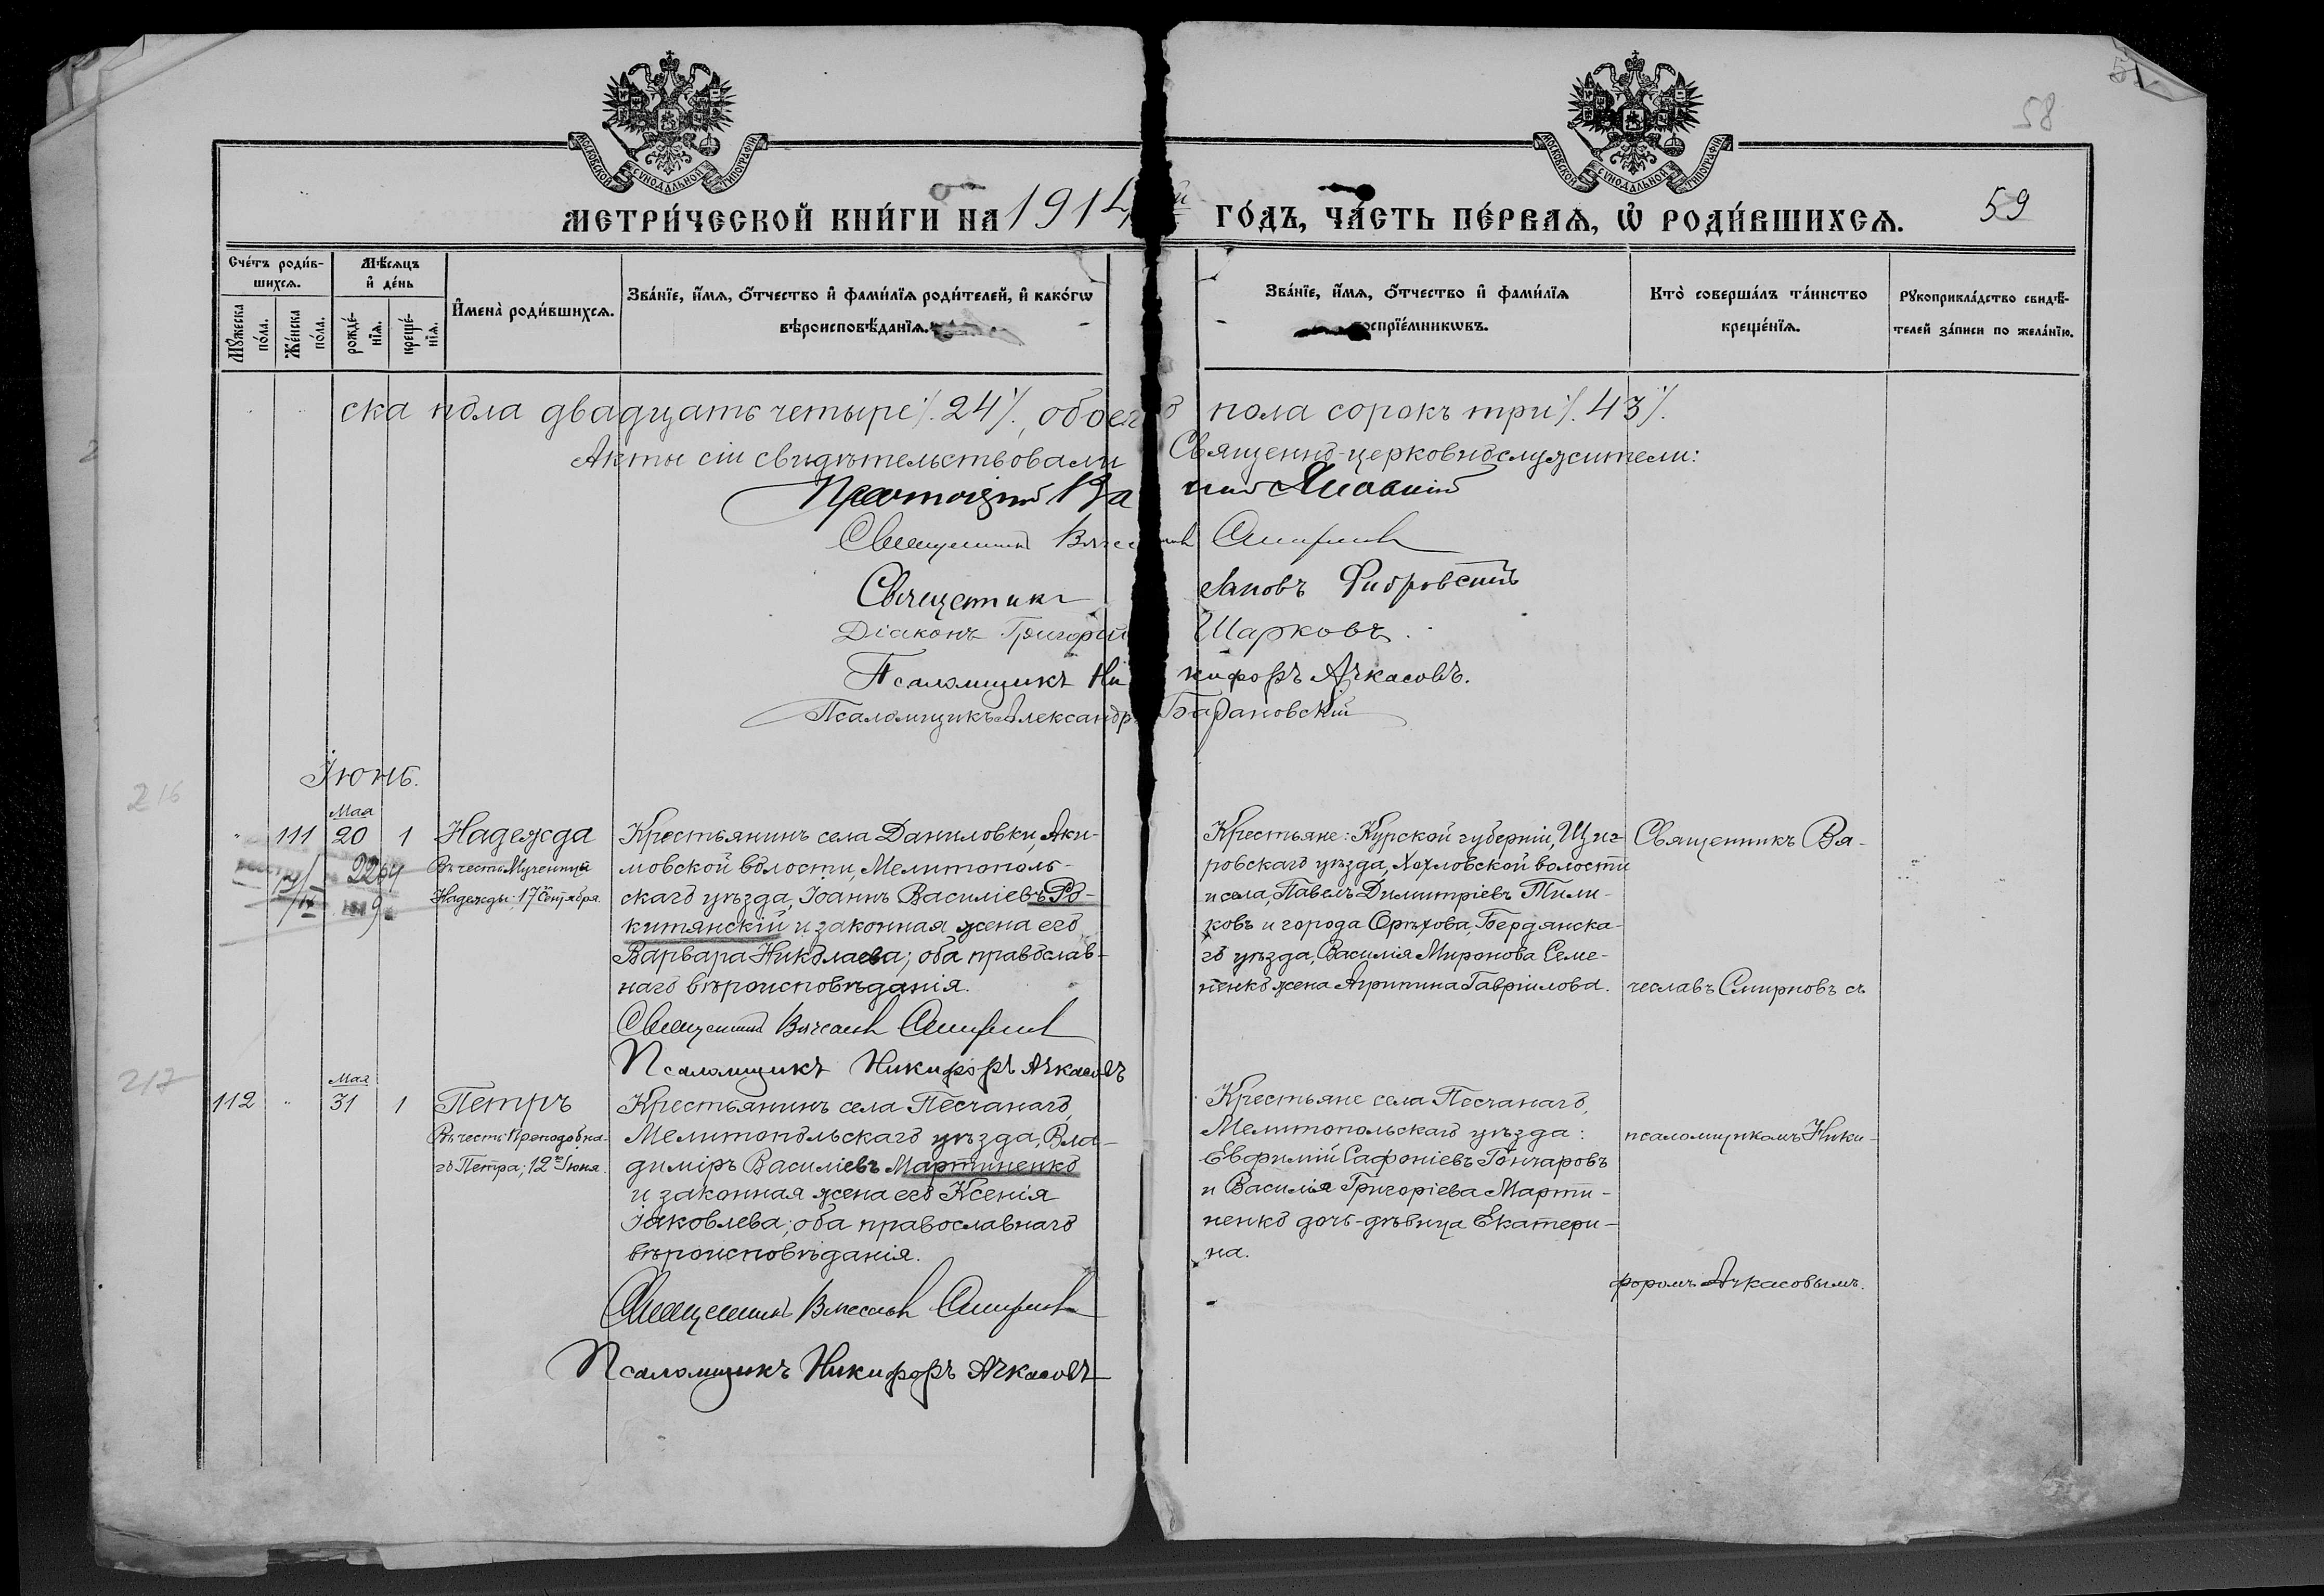 58
МОСКОВСКОЙ СѴНОДАЛЬНОЙ ТИПОГРАФІИ
МОСКОВСКОЙ СѴНОДАЛЬНОЙ ТИПОГРАФІИ
МЕТРИ́ЧЕСКОЙ КНИ́ГИ НА 1914 й ГО́ДЪ, ЧА́СТЬ ПЕ́РВАѦ, Ѡ҆ РОДИ́ВШИХСѦ. 59
Сче́тъ роди́в-
шихсѧ.
Мꙋ́жеска
по́ла.
Же́нска
по́ла.
Мѣ́сѧцъ
и҆ де́нь
рожде́-
нїѧ.
креще́-
нїѧ.
И҆мена̀ роди́вшихсѧ.
Зва́нїе, и҆́мѧ, ѻ҆́тчество и҆ фами́лїѧ роди́телей, и҆ како́гѡ
вѣроисповѣ́данїѧ.
Зва́нїе, и҆́мѧ, ѻ҆́тчество и҆ фами́лїѧ
воспрїе́мникѡвъ.
Кто̀ соверша́лъ та́инство
креще́нїѧ.
Рꙋкоприкла́дство свидѣ́-
телей за́писи по жела́нїю.
ска пола двадцать четыре /. 24 /., обоего пола сорокъ три /. 43 /.
Акты сіи свидѣтельствовали Священно-церковнослужители:
Протоіерей
Священникъ Вячеславъ Смирновъ
Священникъ Іаковъ
Діаконъ Григорій Шарковъ.
Псаломщикъ Никифоръ Ачкасовъ.
Псаломщикъ Александръ Барановскій
Іюнь.
216
Мая
" 111 20 1 Надежда
Въ честь Мученицы
Надежды: 17 Сентября.
2264
Крестьянинъ села Даниловки, Аки-
мовской волости, Мелитополь-
скаго уѣзда, Іоаннъ Василіевъ Ро-
китянскій и законная жена его
Варвара Николаева; оба православ-
наго вѣроисповѣданія.
Священникъ Вячеславъ Смирновъ
Псаломщикъ Никифоръ Ачкасовъ
Крестьяне: Курской губерніи, Щиг-
ровскаго уѣзда, Хохловской волости
и села, Павелъ Димитріевъ Тили-
ковъ и города Орѣхова, Бердянска-
го уѣзда, Василія Миронова Семе-
ненко жена Агрипина Гавріилова.
Священникъ Вя-
чеславъ Смирновъ съ
217
Мая
112 " 31 1 Петръ
Въ честь Преподобна-
го Петра; 12го Іюня.
Крестьянинъ села Песчанаго,
Мелитопольскаго уѣзда, Вла-
диміръ Василіевъ Мартиненко
и законная жена его Ксенія
Іаковлева; оба православнаго
вѣроисповѣданія.
Священникъ Вячеславъ Смирновъ
Псаломщикъ Никифоръ Ачкасовъ
Крестьяне села Песчанаго,
Мелитопольскаго уѣзда:
Евфимій Сафоніевъ Гончаровъ
и Василія Григоріева Марти-
ненко дочь-дѣвица Екатери-
на.
псаломщикомъ Ники-
форомъ Ачкасовымъ.